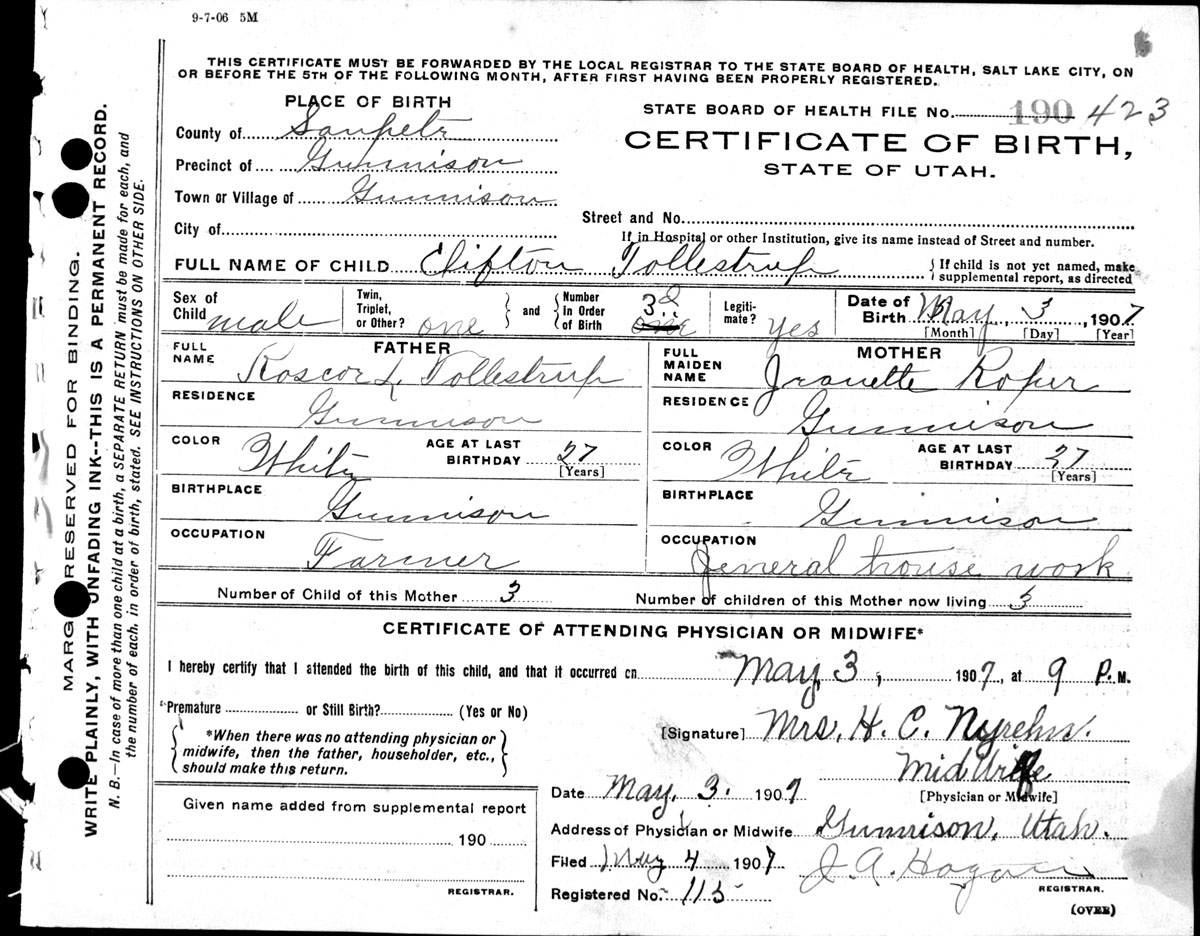 9-7-06 5M
THIS CERTIFICATE MUST BE FORWARDED BY THE LOCAL REGISTRAR TO THE STATE BOARD OF HEALTH, SALT LAKE CITY, ON
OR BEFORE THE 5TH OF THE FOLLOWING MONTH, AFTER FIRST HAVING BEEN PROPERLY REGISTERED.
PLACE OF BIRTH
STATE BOARD OF HEALTH FILE No. 190 423
County of Sanpete
CERTIFICATE OF BIRTH,
STATE OF UTAH.
Precinct of Gunnison
Town or Village of Gunnison
Street and No.
City of
If in Hospital or other Institution, give its name instead of Street and number.
FULL NAME OF CHILD Clifton Tollestrup
{ If child is not yet named, make
supplemental report, as directed
Sex of Child male
Twin, Triplet, or Other? one
and
Number In Order of Birth 3d one
Legitimate? yes
Date of Birth May 3, 1907
[Month] [Day] [Year]
FATHER
FULL NAME Roscor L. Tollestrup
RESIDENCE Gunnison
COLOR White
AGE AT LAST BIRTHDAY 27
[Years]
BIRTHPLACE Gunnison
OCCUPATION Farmer
MOTHER
FULL MAIDEN NAME Roper
RESIDENCE Gunnison
COLOR White
AGE AT LAST BIRTHDAY 27
[Years]
BIRTHPLACE Gunnison
OCCUPATION General house work
Number of Child of this Mother 3
Number of children of this Mother now living 3
CERTIFICATE OF ATTENDING PHYSICIAN OR MIDWIFE*
I hereby certify that I attended the birth of this child, and that it occurred on May 3, 1907, at 9 P.M.
*Premature or Still Birth? (Yes or No)
*When there was no attending physician or
midwife, then the father, householder, etc.,
should make this return.
[Signature] Mrs. H. C.
Midwife
[Physician or Midwife]
Date May 3. 1907
Address of Physician or Midwife Gunnison, Utah.
Filed May 4 1907
J. A. Hagan
REGISTRAR.
Registered No. 115
(OVER)
Given name added from supplemental report
190
REGISTRAR.
MARGIN RESERVED FOR BINDING.
WRITE PLAINLY, WITH UNFADING INK--THIS IS A PERMANENT RECORD.
N. B.—In case of more than one child at a birth, a SEPARATE RETURN must be made for each, and
the number of each, in order of birth, stated. SEE INSTRUCTIONS ON OTHER SIDE.